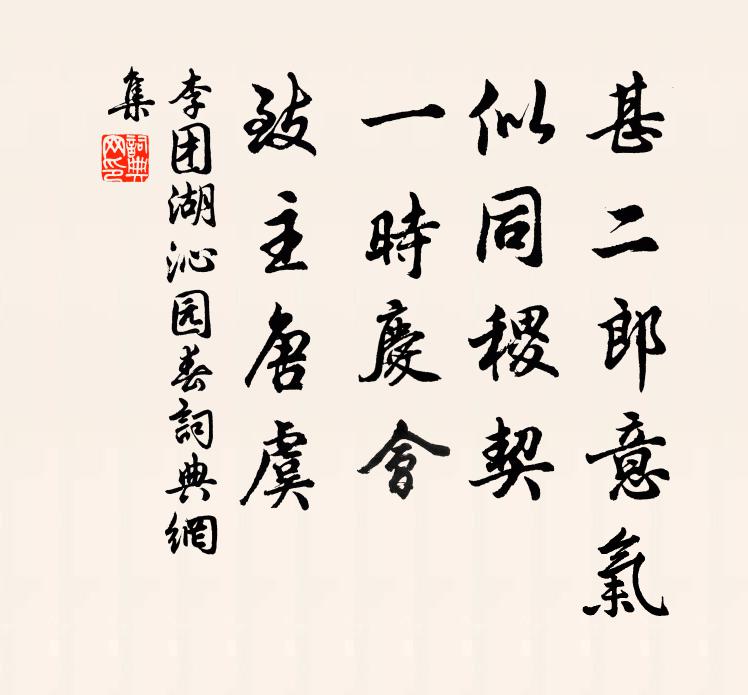 甚二郎意氣
似同稷契
一時慶會
致主唐虞
李团湖沁园春詞典網
集
詞典
网印